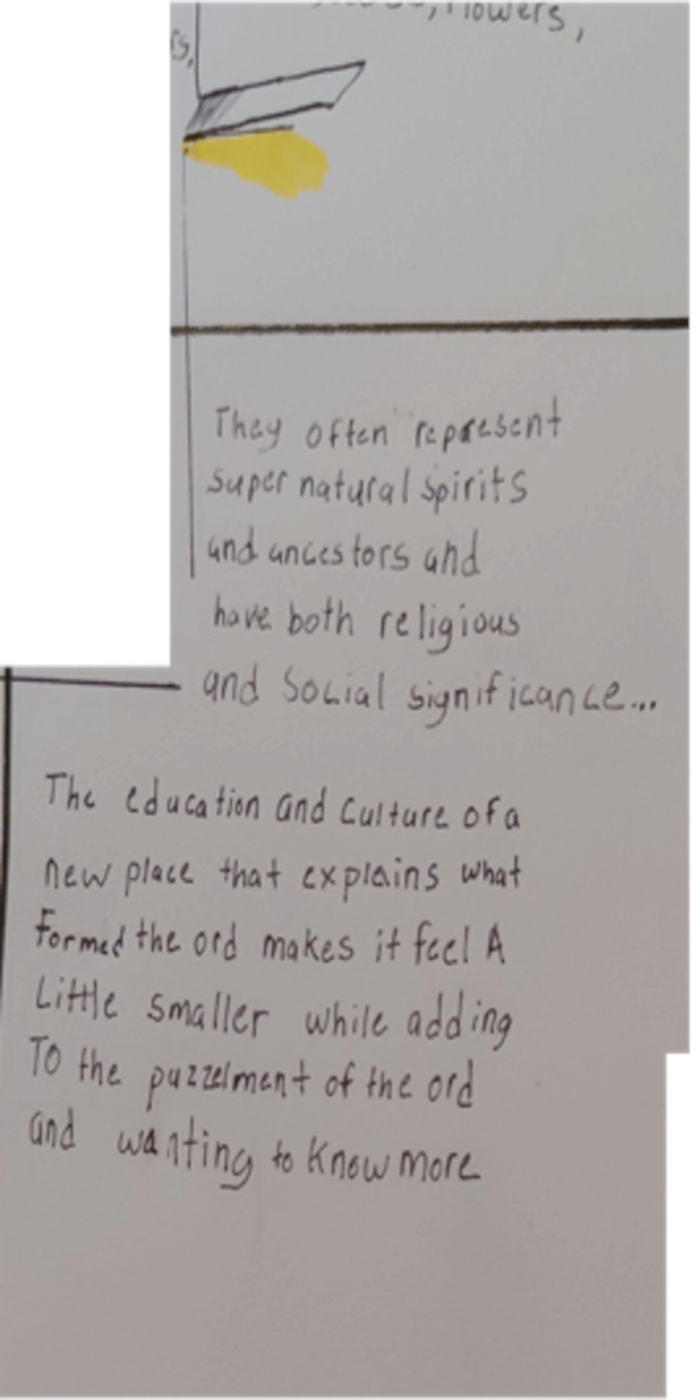 flowers,
They often represent
super natural spirits
and ancestors and
have both religious
and Social significance...
The education and Culture of a
new place that explains what
formed the ord makes it feel A
Little smaller while adding
To the puzzelment of the ord
and wanting to Know more